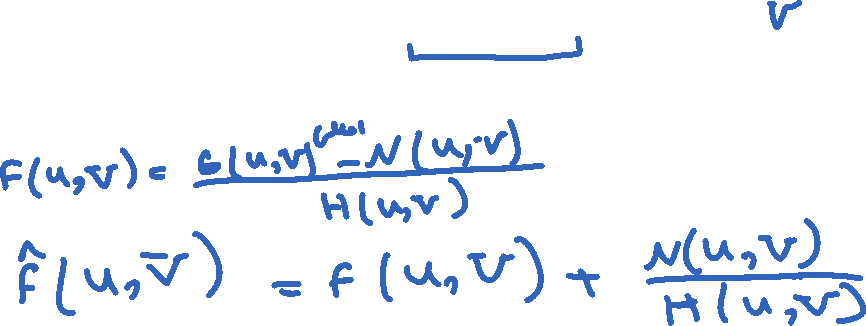 v
F(u,v) = G(u,v) - N(u,v) / H(u,v)
F̂(u,v) = F(u,v) + N(u,v) / H(u,v)